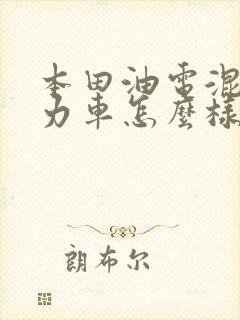 本田油電混
力車怎麼樣
朗布尔